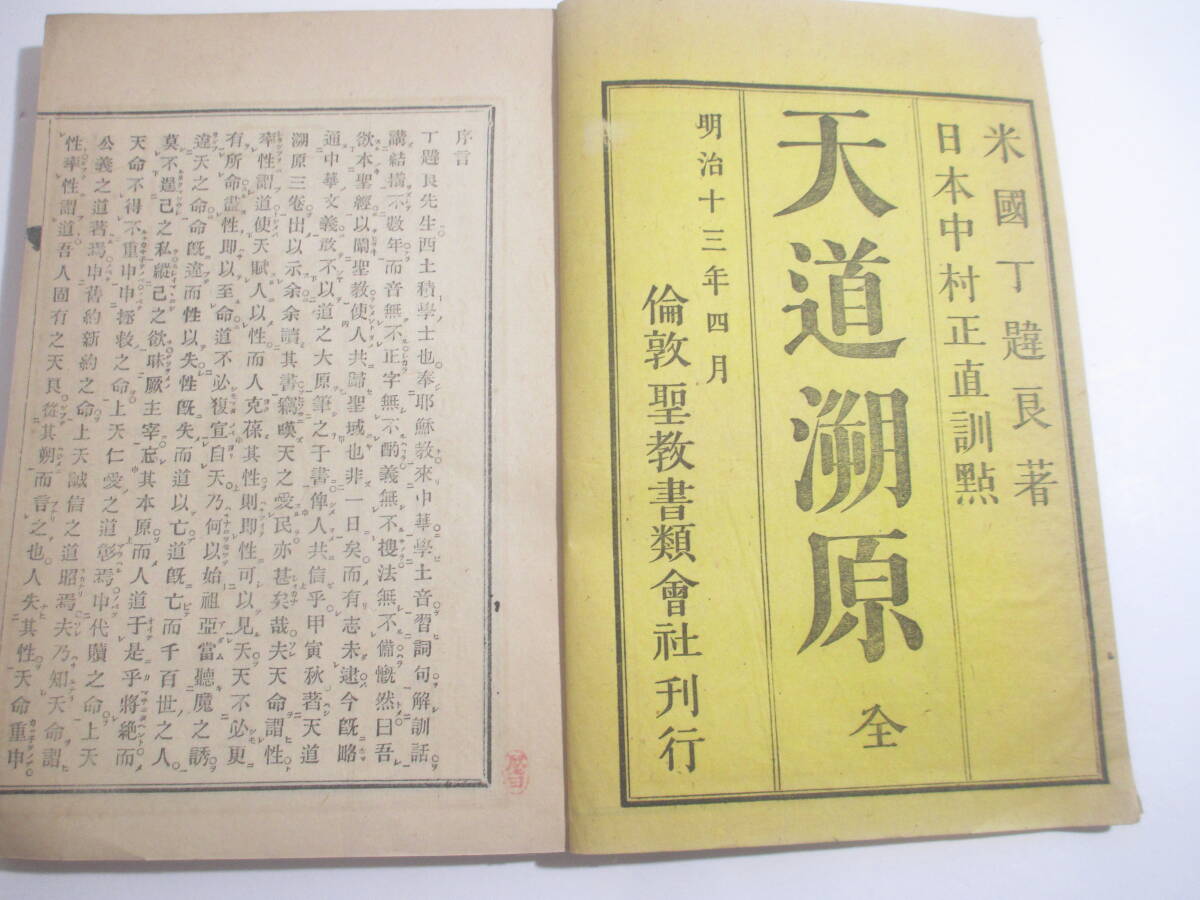 米國丁韙良著
日本中村正直訓點
天道溯原 全
明治十三年四月
倫敦聖教書類會社刊行
序言
丁韙良先生西土積學士也奉耶穌教來中華學土音習詞句解訓話
講結構不數年而音無不正字無不酌義無不搜法無不備慨然曰吾
欲本聖經以闡聖教使人共歸聖域也非一日矣而有志未逮今旣略
通中華文義敢不以道之大原筆之于書俾人共信乎甲寅秋著天道
溯原三卷出以示余余讀其書竊嘆天之愛民亦甚矣哉夫天命謂性
率性謂道使天賦人以性而人克葆其性則卽性可以見天天不必更
有所命盡性卽以至命道不必復宣自天乃何以始祖亞當聽魔之誘
違天之命命旣違而性以失性旣失而道以亡道旣亡而千百世之人
莫不逞己之私縱己之欲昧厥主宰忘其本原而人道于是乎將絕而
天命不得不重申申拯救之命上天仁愛之道彰焉申代贖之命上天
公義之道著焉申舊約新約之命上天誠信之道昭焉夫乃知天命謂
性率性謂道吾人固有之天良從其朔而言之也人失其性天命重申